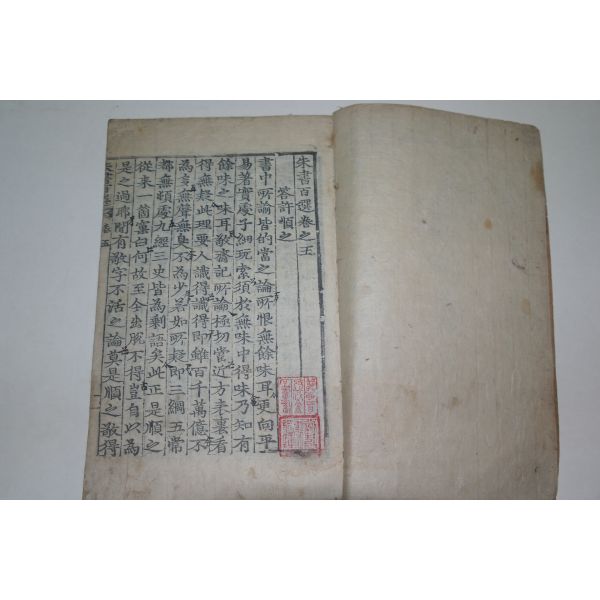 朱書百選卷之五
答許順之
書中所諭皆的當之論所恨無餘味耳更向平
易著實處子細玩索須於無味中得味乃知有
餘味之味耳敬齋記所論極切當近方表裏看
得無疑此理要人識得識得即雖百千萬億不
為多無聲無臭不為少若如所疑即三綱五常
都無頓處九經三史皆為剩語矣此正是順之
從來一箇窠臼何故至今出脫不得豈自以為
是之過耶聞有敬字不活之論莫是順之敬得